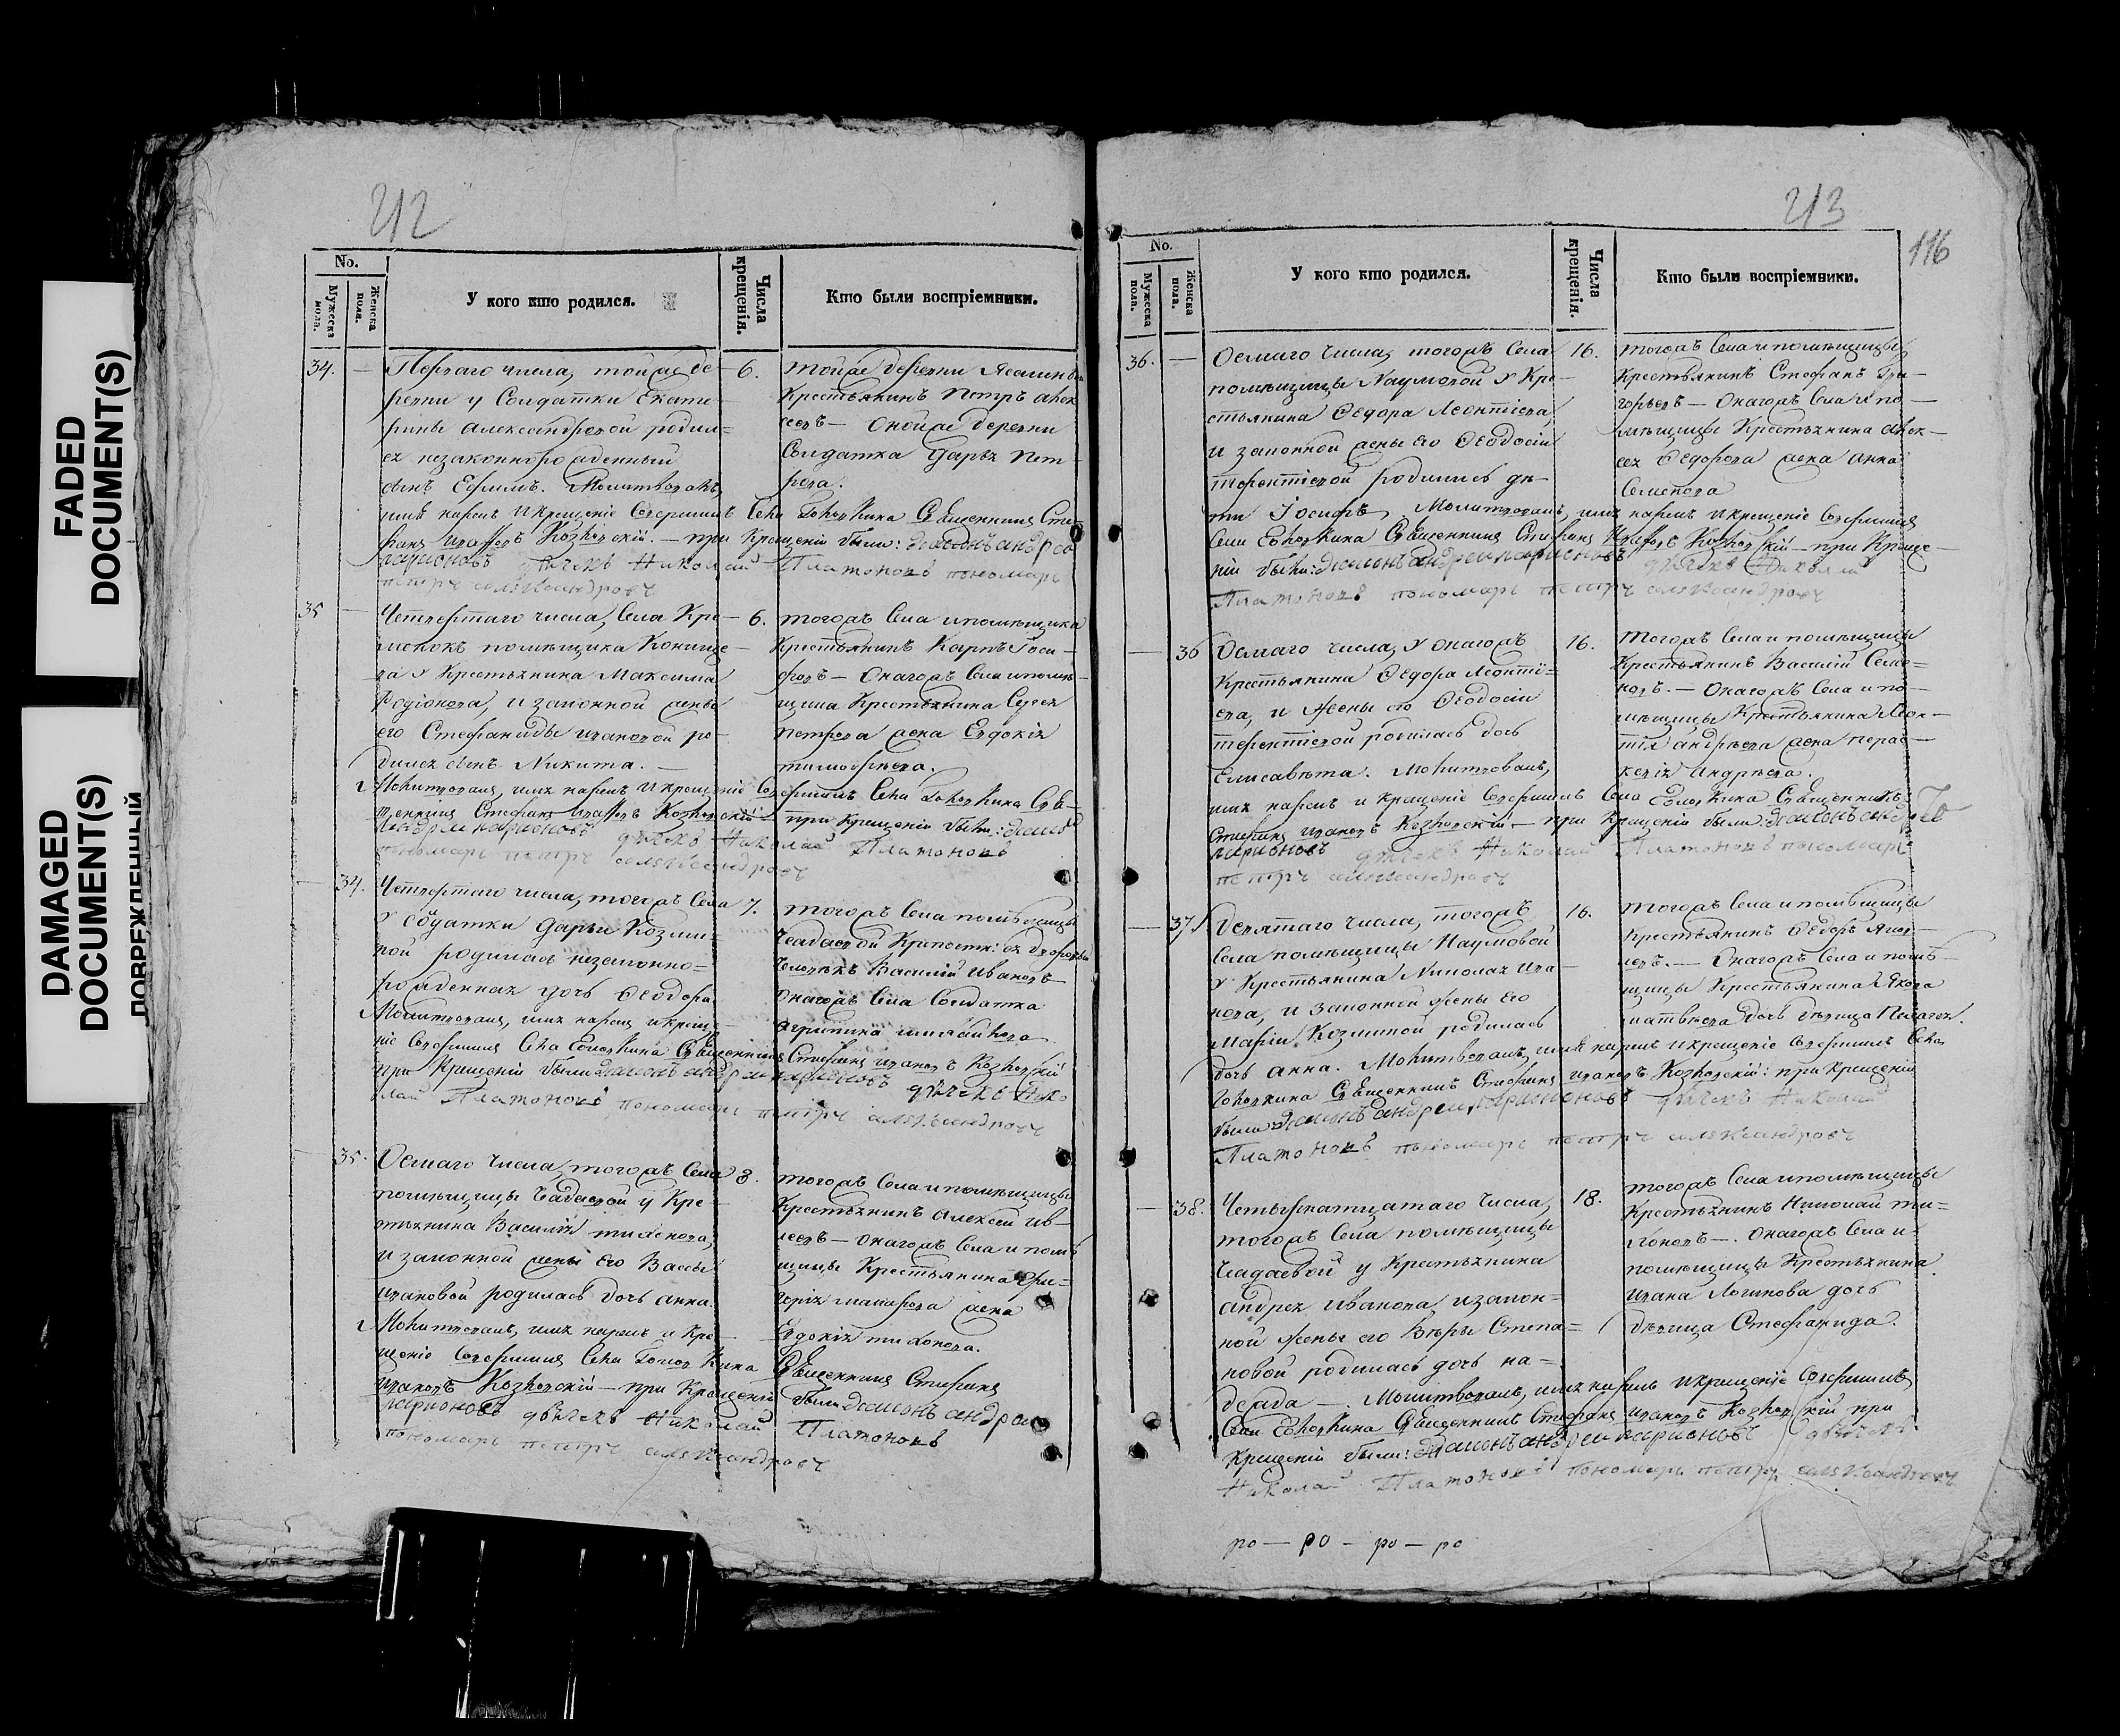 FADED
DOCUMENT(S)
DAMAGED
DOCUMENT(S)
ПОВРЕЖДЕННЫЙ
212
No.
Мужеска пола.
Женска пола.
У кого кто родился.
Числа крещенія.
Кто были воспріемники.
34. — Перваго числа, тойже де-
ревни у Солдатки Екате-
рины Александровой родил=
ся незаконнорожденный
сынъ Ефимъ. Молитвовалъ,
имя нарекъ и крещеніе совершилъ Села
Священникъ Сте-
фанъ Ивановъ — при крещеніи были: діаконъ андрей
ларионовъ дьячекъ Николай Платоновъ пономарь
петръ александровъ
6. тойже деревни
Крестьянинъ Петръ Алек
сеевъ — Онойже деревни
Солдатка Дарья Пет-
рова.
35 — Четвертаго числа, Села
помѣщика
у Крестьянина Максима
Родіонова, и законной жены
его Стефаниды Ивановой ро-
дился сынъ Никита. —
Молитвовалъ, имя нарекъ и крещеніе совершилъ Села Свя-
щенникъ Стефанъ Ивановъ — при крещеніи были: діаконъ
андрей ларионовъ дьячекъ Николай Платоновъ
пономарь петръ александровъ
6. тогожъ Села и помѣщика
Крестьянинъ Карпъ Іоси-
фовъ — Онагожъ Села и помѣ-
щика Крестьянина Сергея
Петрова жена Евдокія
тимофѣева.
— 34. Четвертаго числа, тогожъ Села
у Солдатки Дарьи Козми-
ной родилась незаконно=
рожденная дочь Феодора
Молитвовалъ, имя нарекъ и креще-
ніе совершилъ Села Священникъ Стефанъ Ивановъ
при крещеніи были діаконъ андрей ларионовъ дьячекъ Нико
лай Платоновъ пономарь петръ александровъ
7. тогожъ Села помѣщицы
Чаадаевой
Василій Ивановъ
Онагожъ Села Солдатка
— 35. Осмаго числа, тогожъ Села
помѣщицы Чадаевой у Кре-
стьянина Василія тихонова,
и законной жены его Вассы
Ивановой родилась дочь анна.
Молитвовалъ, имя нарекъ и кре-
щеніе совершилъ Села Священникъ Стефанъ
Ивановъ — при крещеніи были діаконъ андрей
ларионовъ дьячекъ Николай Платоновъ
пономарь петръ александровъ
8. тогожъ Села и помѣщицы
Крестьянинъ Алексей
— онагожъ Села и помѣ
щицы Крестьянина Гри-
горія макарова жена
Евдокія тихонова.
213
116
No.
Мужеска пола.
Женска пола.
У кого кто родился.
Числа крещенія.
Кто были воспріемники.
36. — Осмаго числа, тогожъ Села
помѣщицы Наумовой у Кре-
стьянина Ѳедора Леонтіева,
и законной жены его Ѳеодосіи
терентіевой родились дѣ-
ти Іосифъ, Молитвовалъ, имя нарекъ и крещеніе совершилъ
Села Священникъ Стефанъ Ивановъ — при креще-
ніи были: діаконъ андрей ларионовъ дьячекъ Николай
Платоновъ пономарь петръ александровъ
16. тогожъ Села и помѣщицы
Крестьянинъ Стефанъ Гри-
горьевъ — Онагожъ Села и по-
мѣщицы Крестьянина Алек-
сея Ѳедорова жена Анна
Семенова
— 36 Осмаго числа, у онагожъ
Крестьянина Ѳедора Леонті=
ева, и жены его Ѳеодосіи
терентіевой родилась дочь
Елисавета. Молитвовалъ,
имя нарекъ и крещеніе совершилъ Села Священникъ
Стефанъ Ивановъ — при крещеніи были: діаконъ андрей
ларионовъ дьячекъ Николай Платоновъ пономарь
петръ александровъ
16. тогожъ Села и помѣщицы
Крестьянинъ Василій Семе-
новъ. — Онагожъ Села и по-
мѣщицы Крестьянина Леон-
тія андрѣева жена парас-
кевія андрѣева.
— 37 Девятаго числа, тогожъ
Села помѣщицы Наумовой
у Крестьянина Николая Ива-
нова, и законной жены его
Марьи Козминой родилась
дочь анна. Молитвовалъ, имя нарекъ и крещеніе совершилъ Села
Священникъ Стефанъ Ивановъ при крещеніи
были діаконъ андрей ларионовъ дьячекъ Николай
Платоновъ пономарь петръ александровъ
16. тогожъ Села и помѣщицы
Крестьянинъ Ѳедоръ Яков-
левъ. — Онагожъ Села и помѣ-
щицы Крестьянина Якова
матвѣева дочь дѣвица Пелагея.
— 38. Четырнатцатаго числа,
тогожъ Села помѣщицы
Чадаевой у Крестьянина
андрея Иванова, и закон-
ной жены его Вѣры Степа=
новой родилась дочь на=
дежда — Молитвовалъ, имя нарекъ и крещеніе совершилъ
Села Священникъ Стефанъ Ивановъ при
крещеніи были: діаконъ андрей ларионовъ дьячекъ
Николай Платоновъ пономарь петръ александровъ
18. тогожъ Села и помѣщицы
Крестьянинъ Николай ти=
хоновъ — онагожъ Села и
помѣщицы Крестьянина
Ивана Логинова дочь
дѣвица Стефанида.
ро — ро — ро — ро